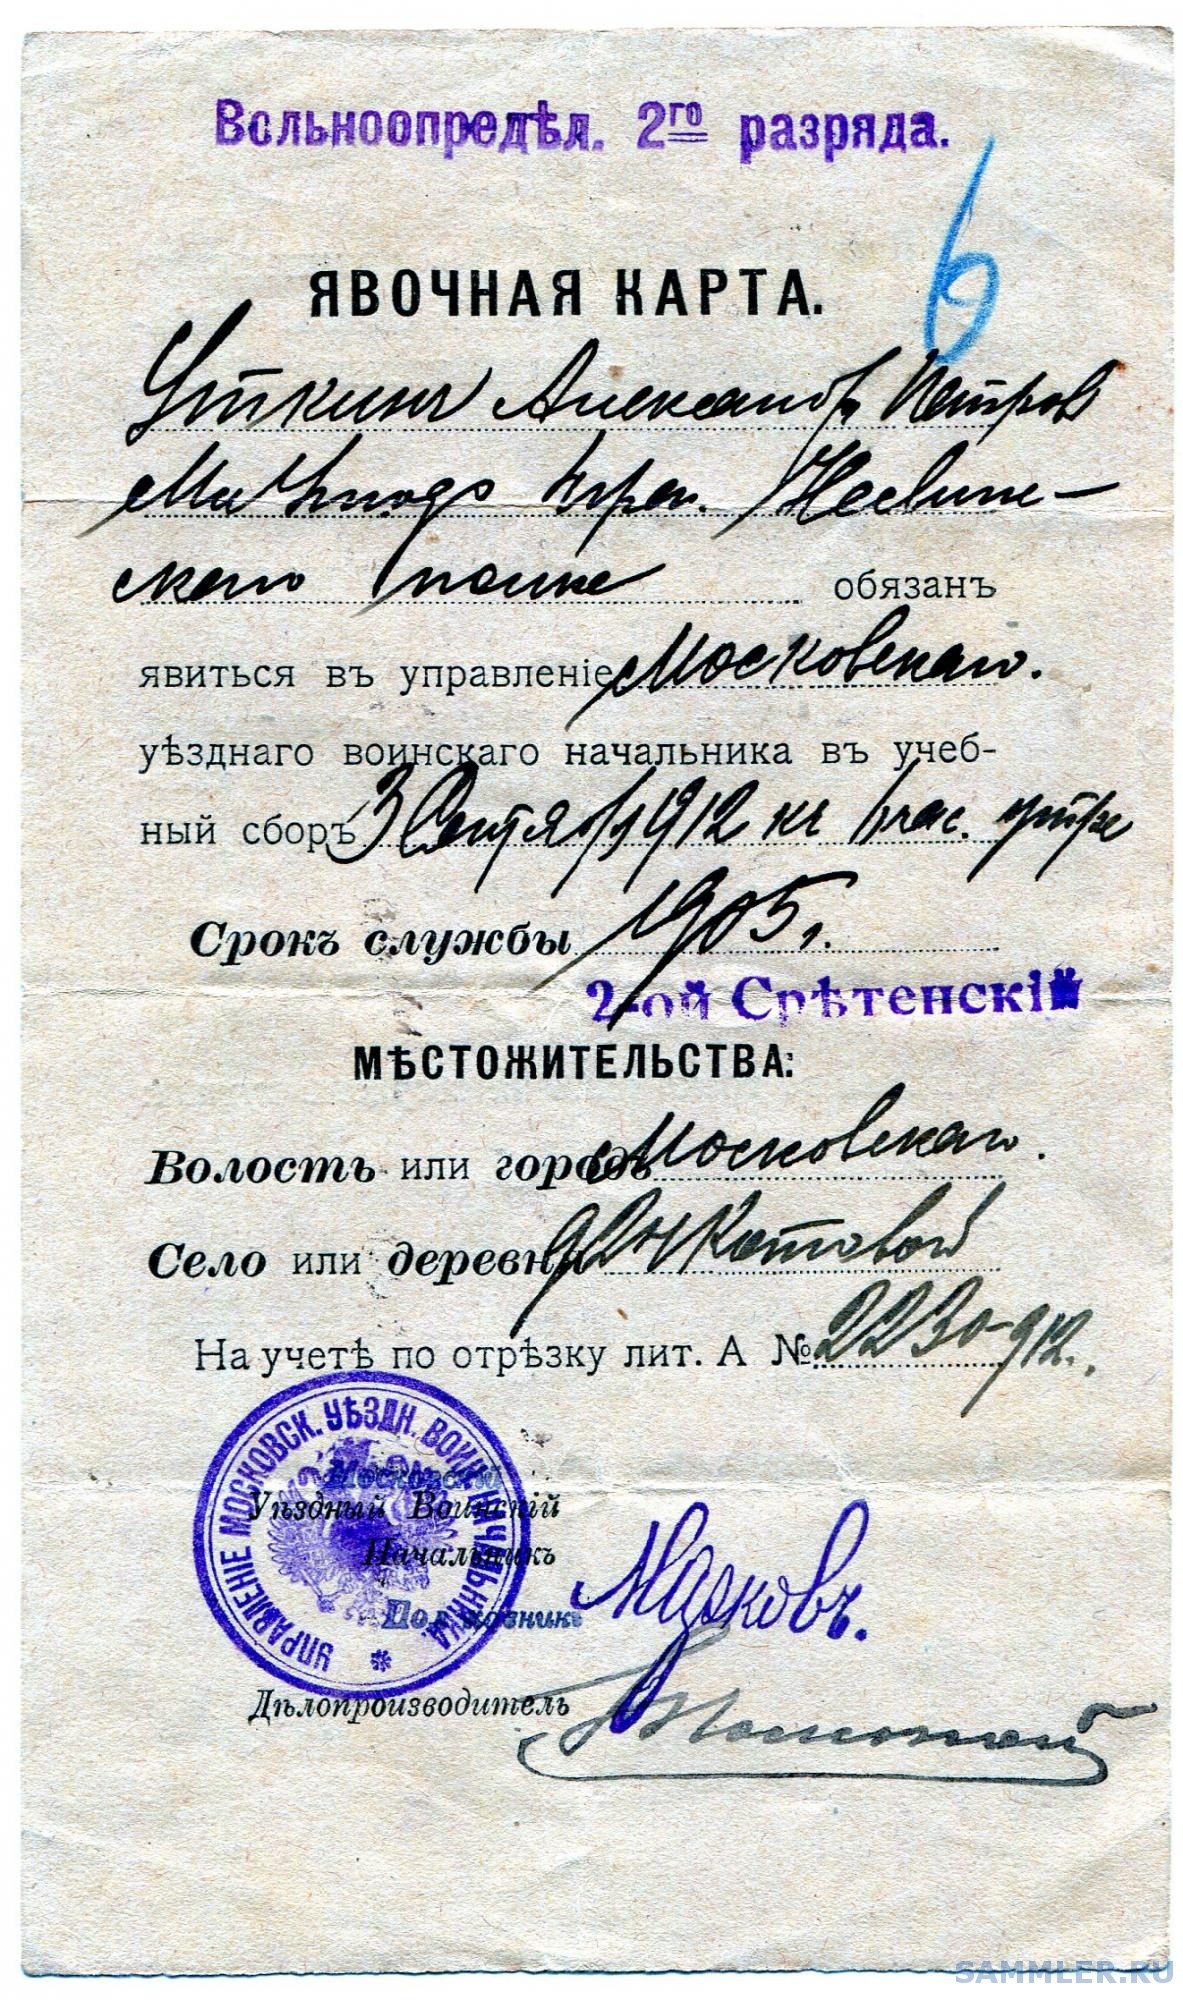 Вольноопредѣл. 2го разряда.
6
ЯВОЧНАЯ КАРТА.
Уткинъ Александръ Петров
Несвиж-
скаго полка обязанъ
явиться въ управленіе Московскаго.
уѣзднаго воинскаго начальника въ учеб-
ный сборъ 3 Сентября 1912 къ час. утра
Срокъ службы 1905 г.
2-ой Срѣтенскій
МѢСТОЖИТЕЛЬСТВА:
Волость или городъ Московскаго.
Село или деревня
На учетѣ по отрѣзку лит. А № 2230-912.
УПРАВЛЕНІЕ МОСКОВСК. УѢЗДН. ВОИН. НАЧАЛЬНИКА.
Московскій
Уѣздный Воинскій
Начальникъ
Полковникъ
Дѣлопроизводитель
SAMMLER.RU